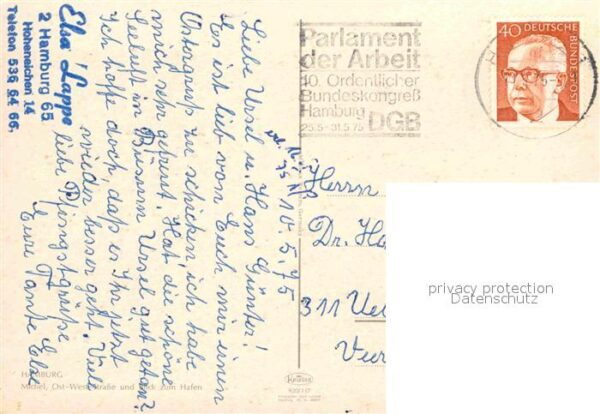 Elsa Lappe
2 Hamburg 65
Hoheneichen 14
Telefon 536 64 66.
Parlament
der Arbeit
10. Ordentlicher
Bundeskongreß
Hamburg
25.5.-31.5.75 DGB
40 DEUTSCHE
BUNDESPOST
10.5.75
Liebe Ursel u. Hans Günter!
Es ist lieb von Euch mir einen
Ostergruß zu schicken ich habe
mich sehr gefreut. Hat die schöne
Seeluft in Büsum Ursel gut getan?
Ich hoffe doch, daß es Ihr jetzt
wieder besser geht. Viele
liebe Pfingstgrüße
Eure Tante Else
Herrn
Dr. Ha
311 Uel
Veer
privacy protection
Datenschutz
HAMBURG
Michel, Ost-West-Straße und Blick zum Hafen
Krüger